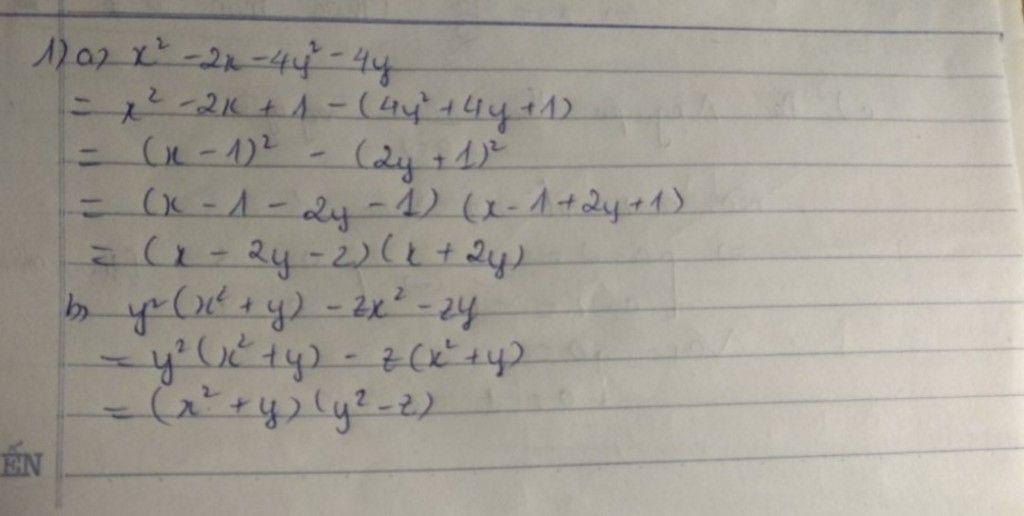 1) a) x² - 2x - 4y² - 4y
= x² - 2x + 1 - (4y² + 4y + 1)
= (x - 1)² - (2y + 1)²
= (x - 1 - 2y - 1) (x - 1 + 2y + 1)
= (x - 2y - 2) (x + 2y)
b) y² (x² + y) - zx² - zy
= y² (x² + y) - z (x² + y)
= (x² + y) (y² - z)
ẾN